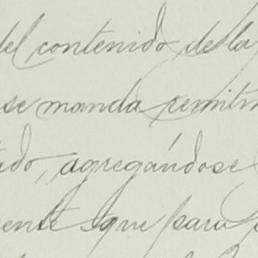 del contenido de la
se manda remitir
do, agregándose
ente que para